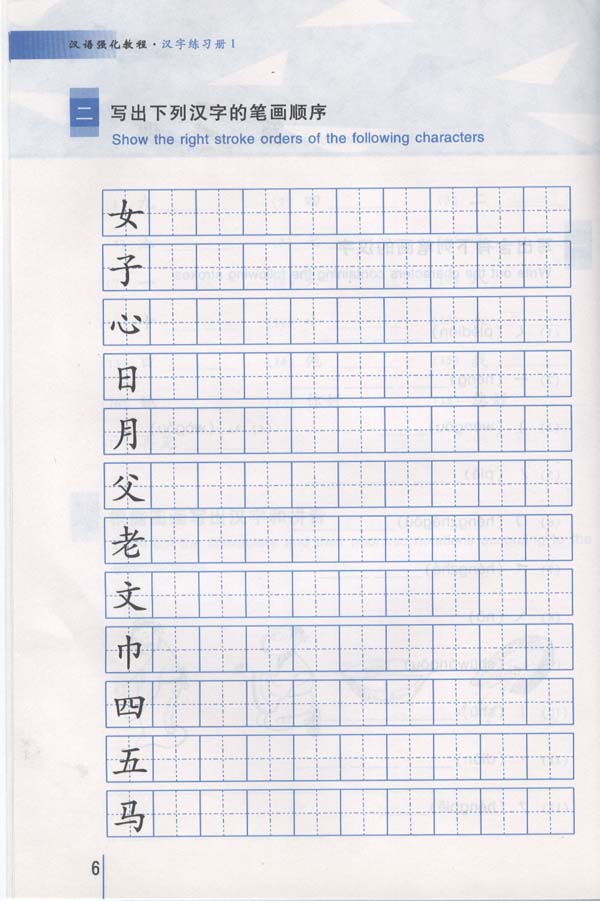 汉语强化教程·汉字练习册1
二 写出下列汉字的笔画顺序
Show the right stroke orders of the following characters
女
子
心
日
月
父
老
文
巾
四
五
马
6